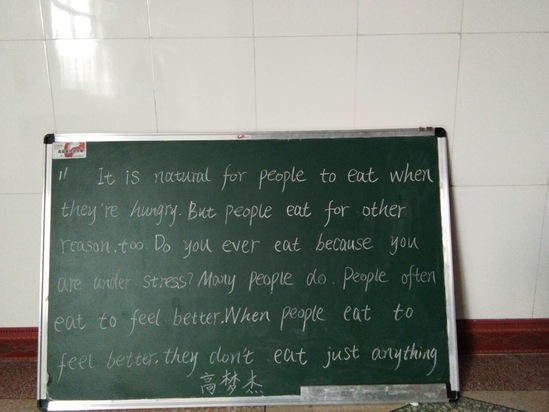 " It is natural for people to eat when
they're hungry. But people eat for other
reason, too Do you ever eat because you
are under stress? Many people do. People often
eat to feel better. When people eat to
feel better, they don't eat just anything
高梦杰